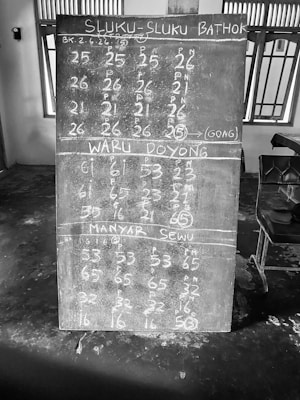 SLUKU-SLUKU BATHOK
BK. 2. 6. 2 6 (5)
25 25 25 26
26 26 26 21
21 21 21 26
26 26 26 25 → (GONG)
WARU DOYONG
61 61 53 23
61 65 23
35 16 21 65
MANYAR SEWU
53 53 53 65
65 65 65 32
32 32 32 16
16 16 16 53